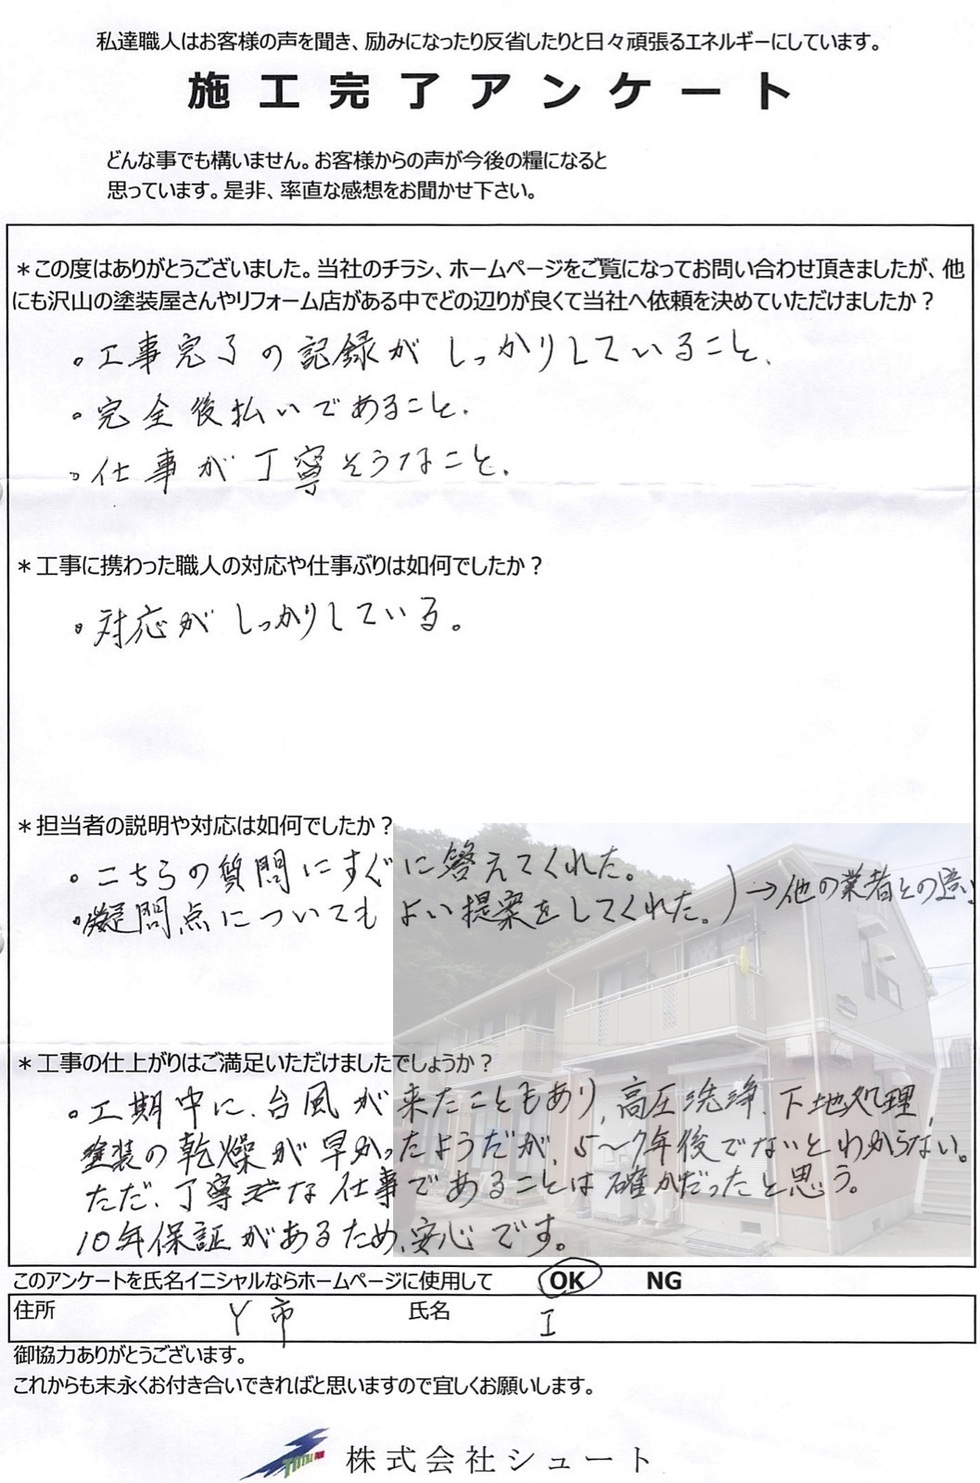 私達職人はお客様の声を聞き、励みになったり反省したりと日々頑張るエネルギーにしています。
施工完了アンケート
どんな事でも構いません。お客様からの声が今後の糧になると
思っています。是非、率直な感想をお聞かせ下さい。
＊この度はありがとうございました。当社のチラシ、ホームページをご覧になってお問い合わせ頂きましたが、他
にも沢山の塗装屋さんやリフォーム店がある中でどの辺りが良くて当社へ依頼を決めていただけましたか？
。工事完了の記録がしっかりしていること、
。完全後払いであること、
。仕事が丁寧そうなこと、
＊工事に携わった職人の対応や仕事ぶりは如何でしたか？
。対応がしっかりしている。
＊担当者の説明や対応は如何でしたか？
。こちらの質問にすぐに答えてくれた。
。疑問点についてもよい提案をしてくれた。）→他の業者との違い
＊工事の仕上がりはご満足いただけましたでしょうか？
。工期中に、台風が来たこともあり、高圧洗浄、下地処理、
塗装の乾燥が早かったようだが、5～7年後でないとわからない。
ただ、丁寧な仕事であることは確かだったと思う。
10年保証があるため、安心です。
このアンケートを氏名イニシャルならホームページに使用して OK NG
住所 Y市 氏名 I
御協力ありがとうございます。
これからも末永くお付き合いできればと思いますので宜しくお願いします。
TOTAL
株式会社シュート